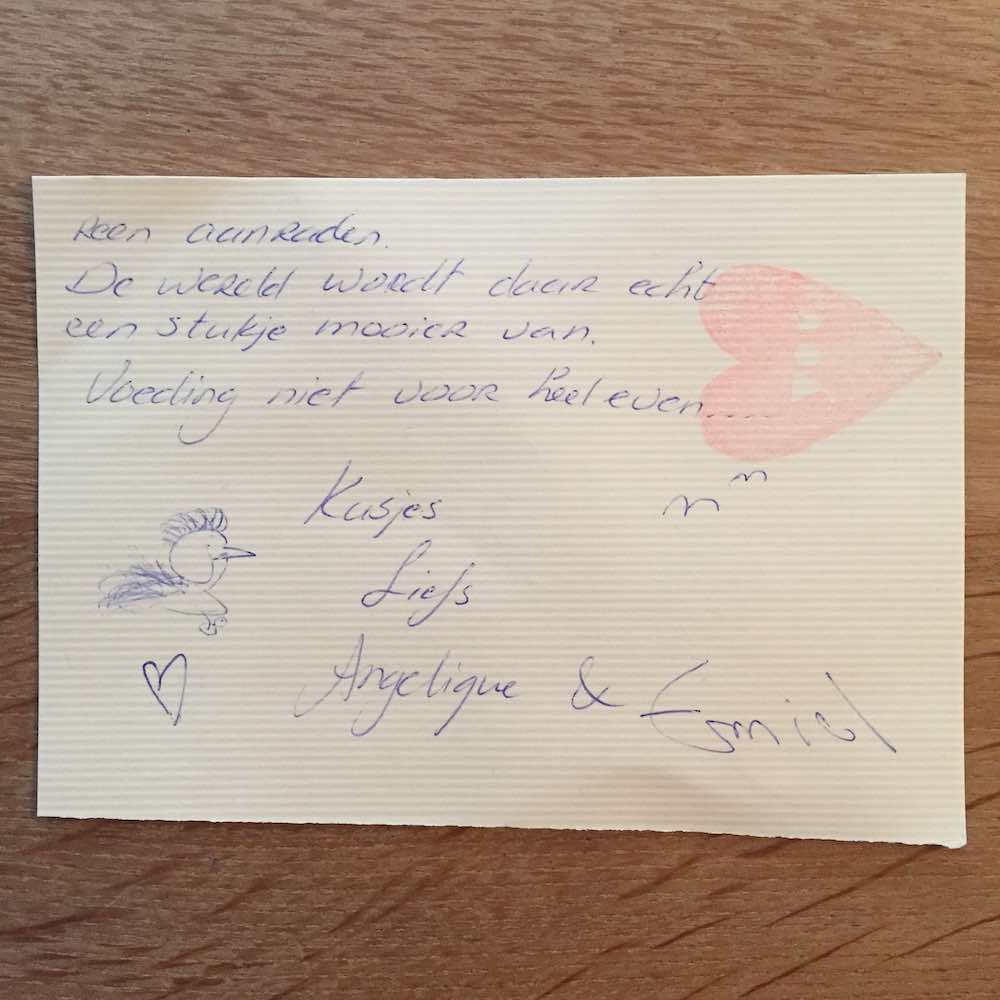 Reen aanraden.
De wereld wordt daar echt
een stukje mooier van.
Voeding niet voor heel even....
Kusjes
Liefs
Angelique & Emiel